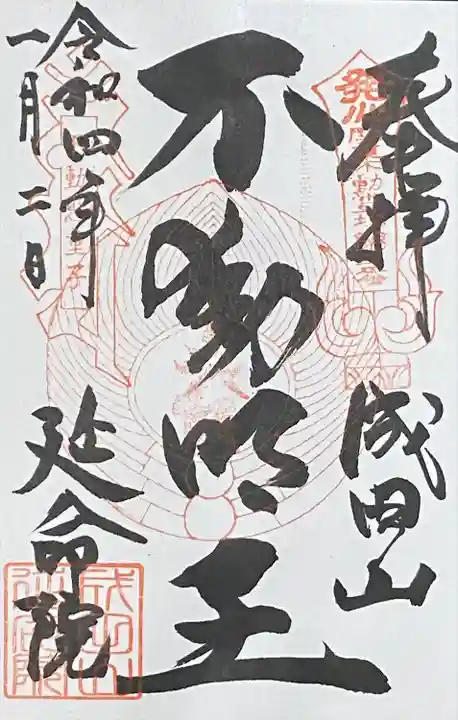 奉拝
成田山
不動明王
令和四年
一月二日
延命院